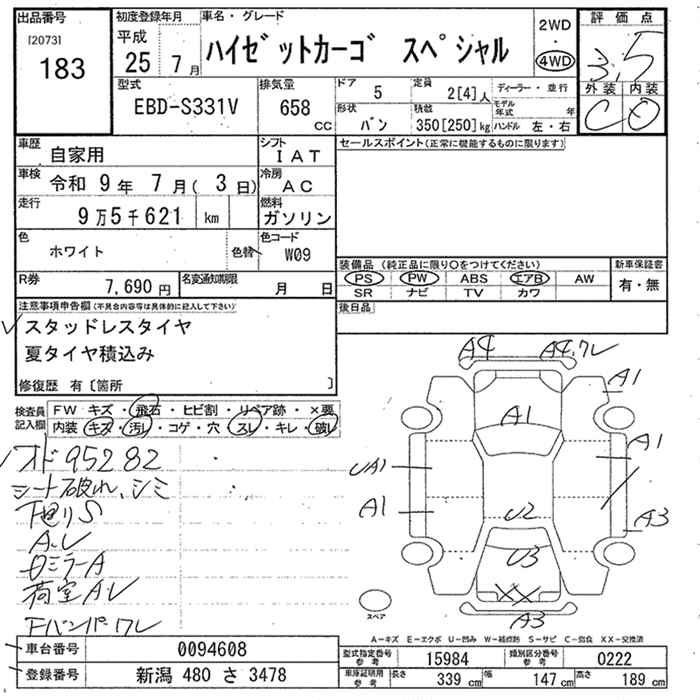 出品番号
[2073]
183
初度登録年月
平成
25 7月
車名・グレード
ハイゼットカーゴ スペシャル
2WD
・
4WD
評価点
3.5
外装 内装
C D
型式
EBD-S331V
排気量
658 CC
ドア 5
定員 2[4]人
ディーラー・並行
モデル年式 年
形状 バン
積載 350[250]kg
ハンドル 左・右
車歴 自家用
シフト IAT
セールスポイント(正常に機能するものに限ります)
車検 令和 9年 7月(3日)
冷房 AC
走行 9万5千621 km
燃料 ガソリン
色 ホワイト
色替
色コード W09
装備品 (純正品に限り○をつけてください)
新車保証書
PS PW ABS エアB AW
有・無
SR ナビ TV カワ
R券 7,690円
名変通知期限 月 日
後日品
注意事項申告欄(不具合内容等は具体的に記入して下さい)
スタッドレスタイヤ
夏タイヤ積込み
修復歴 有〔箇所 〕
検査員記入欄
FW キズ・飛石・ヒビ割・リペア跡・×要
内装 キズ・汚レ・コゲ・穴・スレ・キレ・破レ
95282
シート破れ、シミ
A.レ
日ミラーA
荷室Aレ
Fバンパワレ
A4 A4.ワレ
A1
A1
A1
UA1
A1
U2
A3
U3
XX
A3
スペア
A-キズ E-エクボ U-凹み W-補修跡 S-サビ C-腐食 XX-交換済
車台番号 0094608
登録番号 新潟 480 さ 3478
型式指定番号 参考 15984
類別区分番号 参考 0222
車庫証明用 参考 長さ 339 cm 幅 147 cm 高さ 189 cm